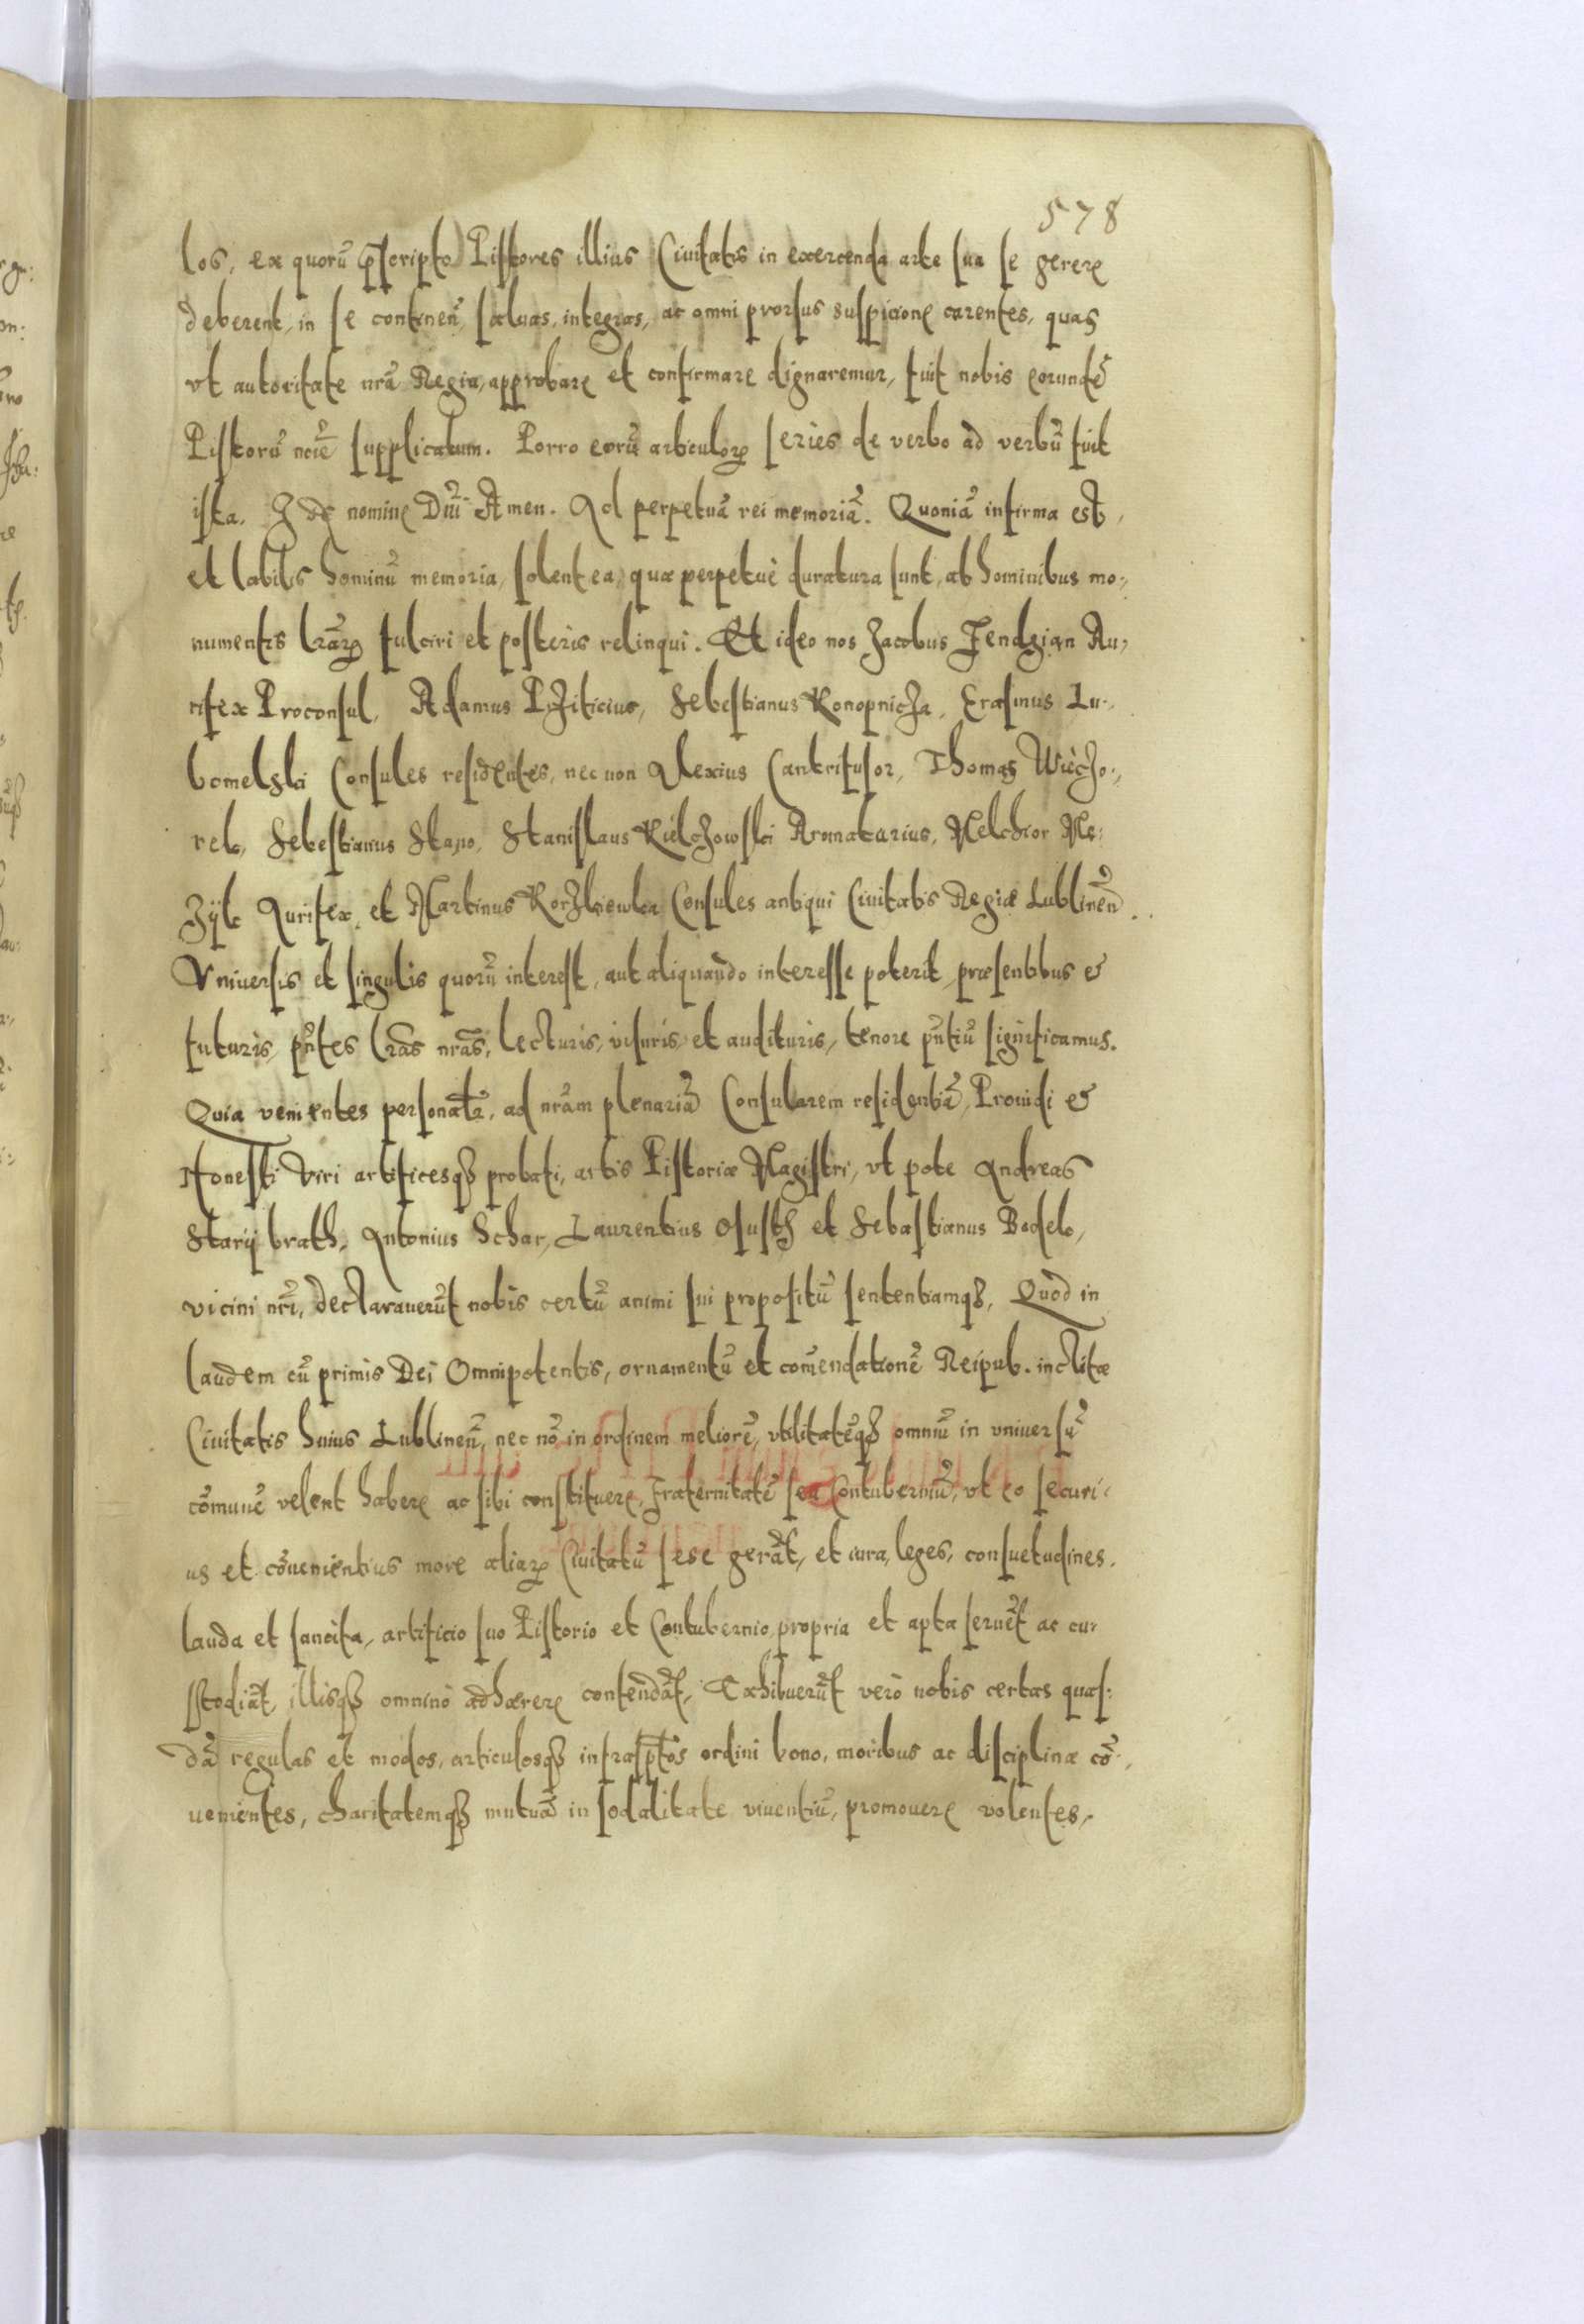 578
los, ex quorũ p̱scripto Pistores illius Ciuitatis in exercenda arte sua se gerere
deberent, in se continen̄, saluas, integras, ac omni prorsus suspicione carentes, quas
vt autoritate nr̃a Regia, approbare et confirmare dignaremur, fuit nobis eorundẽ
Pistorũ nõie supplicatum. Porro eorũ articuloꝝ series de verbo ad verbũ fuit
ista. In nomine Dñi Amen. Ad perpetuã rei memoriã. Quoniã infirma est,
et labilis hominũ memoria, solent ea, quæ perpetuè duratura sunt, ab hominibus mo-
numentis lr̃aꝝ fulciri et posteris relinqui. Et ideo nos Jacobus Jendzian Au-
rifex Proconsul, Adamus Pziticius, Sebestianus Konopnicza, Erasmus Lu-
bomelski Consules residentes, nec non Alexius Cantrifusor, Thomas Wiéczo-
rek, Sebestianus Stano, Stanislaus Kielczowski Aromatarius, Melchior Me-
zyk Aurifex, et Martinus Korzkiewka Consules antiqui Ciuitatis Regiæ Lublinen̄.
Vniuersis et singulis quorũ interest, aut aliquando interesse poterit, præsentibus &
futuris, pñtes lr̃as nr̃as, lecturis, visuris, et audituris, tenore pñtiũ significamus.
Quia venientes personalr̃, ad nr̃am plenariã Consularem residentiã, Prouidi &
Honesti Viri artificesqꝫ probati, artis Pistoriæ Magistri, vt pote Andreas
Starij brath, Antonius Schar, Laurentius Osusth et Sebastianus Bodek,
vicini nr̃i, declarauerũt nobis certũ animi sui propositũ sententiamqꝫ, Quòd in
laudem cũ primis Dei Omnipotentis, ornamentũ et com̃endationẽ Reipub. inclitæ
Ciuitatis huius Lublinen̄, nec nõ in ordinem meliorẽ, vtilitatẽqꝫ omniũ in vniuersũ
cõmunẽ velent habere ac sibi constituere, Fraternitatẽ seu Contuberniũ, vt eo securi-
us et cõuenientius more aliaꝝ Ciuitatũ sese gerãt, et iura, leges, consuetudines,
lauda et sancita, artificio suo Pistorio et Contubernio propria et apta seruẽt ac cu-
stodiãt, illisqꝫ omninò adhærere contendãt, Exhibuerũt verò nobis certas quas-
dã regulas et modos, articulosqꝫ infrasp̃tos ordini bono, moribus ac disciplinæ cõ-
uenientes, charitatemqꝫ mutuã in sodalitate viuentiũ, promouere volentes,